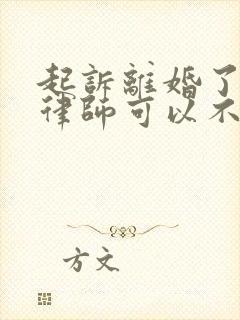 起訴離婚了
律師可以不
方文